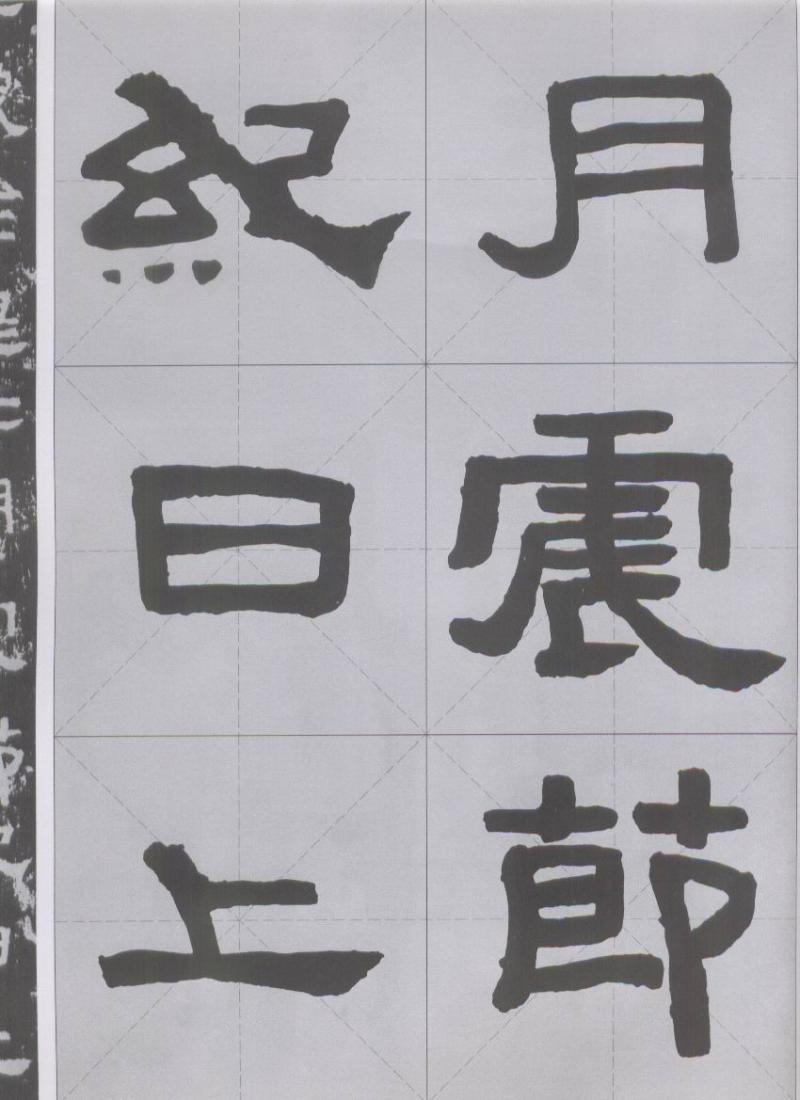 月震節
紀日上